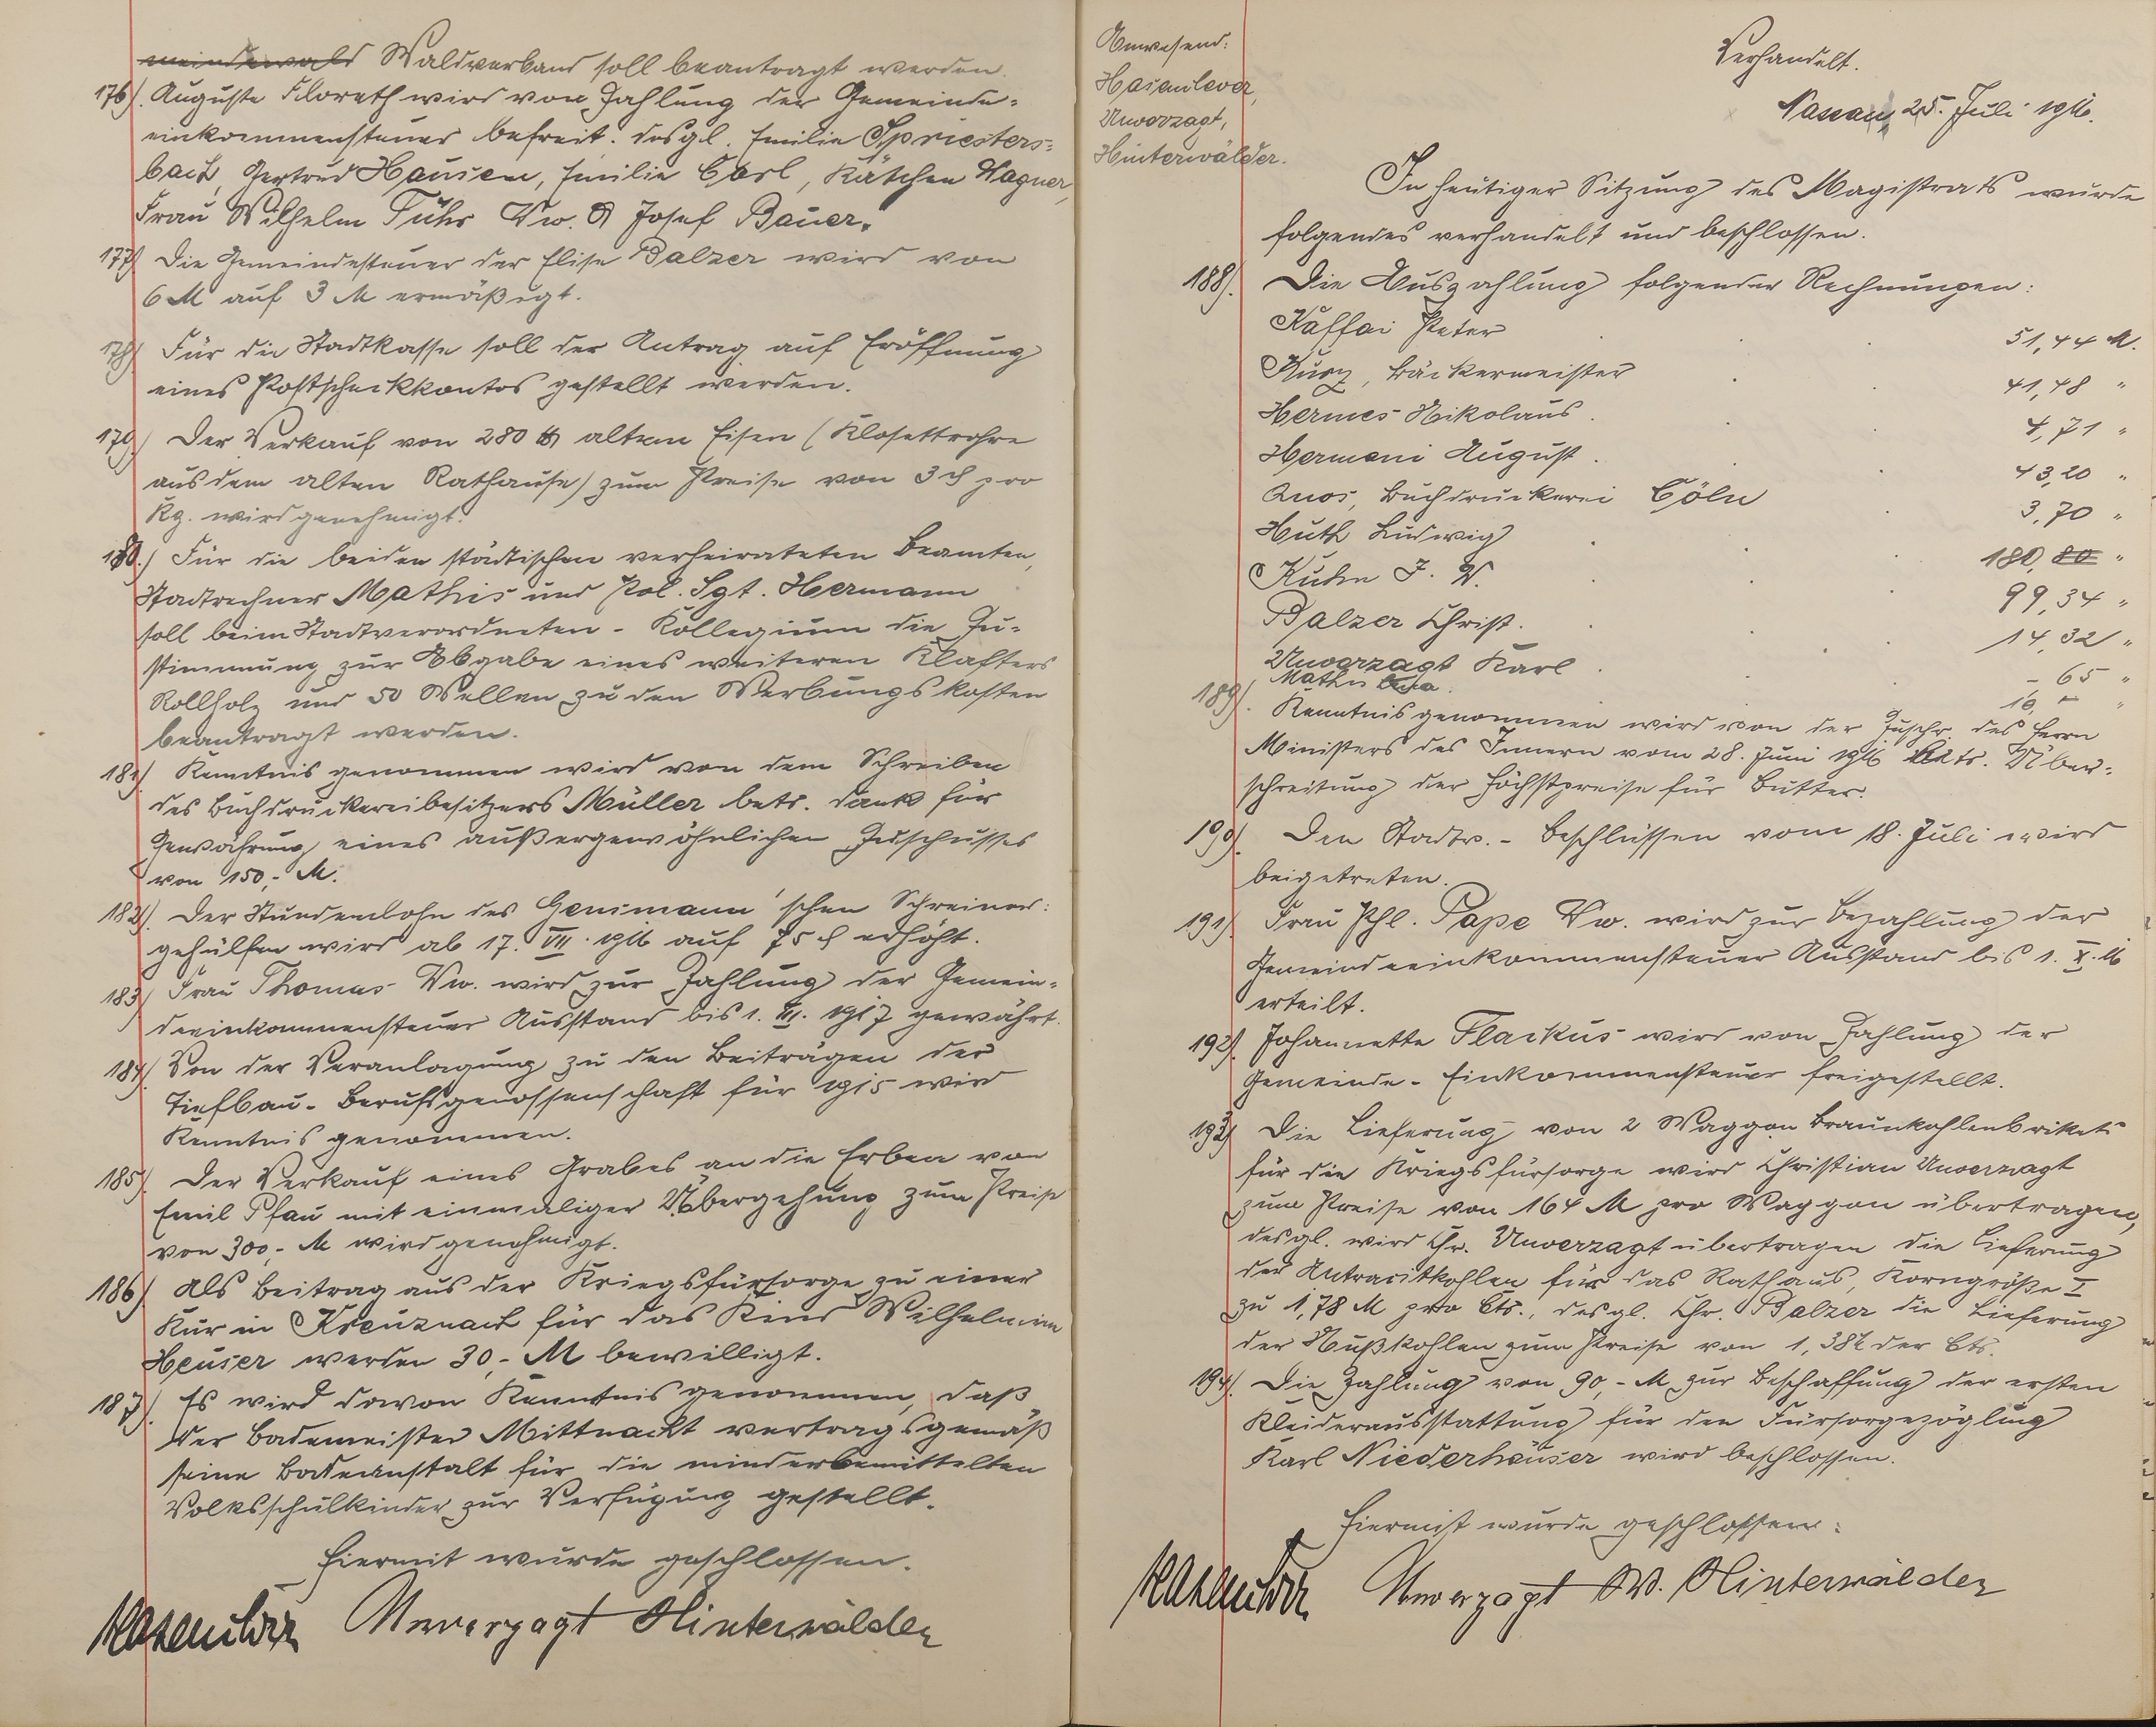 meindewald Waldverband soll beantragt werden.
176). Auguste Florath wird von Zahlung der Gemeinde-
einkommensteuer befreit. desgl. Emilie Spriesters-
bach, Gertrud Hausen, Emilie Carl, Kätchen Wagner,
Frau Wilhelm Führ Ww. & Josef Bauer.
177) Die Gemeindesteuer der Elise Balzer wird von
6 M auf 3 M ermäßigt.
178) Für die Stadtkasse soll der Antrag auf Eröffnung
eines Postscheckkontos gestellt werden.
179) Der Verkauf von 280 ℔ altem Eisen (Klosettrohre
aus dem alten Rathause) zum Preise von 3 ₰ pro
Kg. wird genehmigt.
180.) Für die beiden städtischen verheirateten Beamten,
Stadtrechner Mathis und Pol. Sgt. Hermann
soll beim Stadtverordneten-Kollegium die Zu-
stimmung zur Abgabe eines weiteren Klafters
Rollholz und 50 Wellen zu den Werbungskosten
beantragt werden.
181) Kenntnis genommen wird von dem Schreiben
des Buchdruckereibesitzers Müller betr. Dank für
Gewährung eines außergewöhnlichen Zuschusses
von 150,- M.
182). Der Stundenlohn des Gensmann'schen Schreiner-
gehülfen wird ab 17. VII. 1916 auf 75 ₰ erhöht.
183) Frau Thomas Ww. wird zur Zahlung der Gemein-
deeinkommensteuer Ausstand bis 1. III. 1917 gewährt.
184) Von der Veranlagung zu den Beiträgen der
Tiefbau-Berufsgenossenschaft für 1915 wird
Kenntnis genommen.
185). Der Verkauf eines Grabes an die Erben von
Emil Pfau mit einmaliger Übergehung zum Preise
von 300,- M wird genehmigt.
186) Als Beitrag aus der Kriegsfürsorge zu einer
Kur in Kreuznach für das Kind Wilhelmine
Heuser werden 30,- M bewilligt.
187). Es wird davon Kenntnis genommen, daß
der Bademeister Mittnacht vertragsgemäß
seine Badeanstalt für die minderbemittelten
Volksschulkinder zur Verfügung gestellt.
Hiermit wurde geschlossen.
Hasenclever Unverzagt Hinterwälder
Anwesend:
Hasenclever,
Unverzagt,
Hinterwälder.
Verhandelt.
Nassau, 25. Juli 1916.
In heutiger Sitzung des Magistrats wurde
folgendes verhandelt und beschlossen.
188). Die Auszahlung folgender Rechnungen:
Kaffai Peter 51,44 M.
Kurz, Bäckermeister 41,48 "
Hermes Nikolaus 4,71 "
Hermani August 43,20 "
Quos, Buchdruckerei Cöln 3,70 "
Huth Ludwig 180,80 "
Kuhn J. W. 99,34 "
Balzer Christ. 14,32 "
Unverzagt Karl - 65 "
Mathis 10,- "
189). Kenntnis genommen wird von der Zuschr. des Herrn
Ministers des Innern vom 28. Juni 1916 betr. Über-
schreitung der Höchstpreise für Butter.
190). Den Stadtv.-Beschlüssen vom 18. Juli wird
beigetreten.
191) Frau Phl. Pape Ww. wird zur Bezahlung der
Gemeindeeinkommensteuer Ausstand bis 1. X. 16
erteilt.
192). Johannette Flackus wird von Zahlung der
Gemeinde-Einkommensteuer freigestellt.
193) Die Lieferung von 2 Waggon Braunkohlenbrikets
für die Kriegsfürsorge wird Christian Unverzagt
zum Preise von 164 M pro Waggon übertragen,
desgl. wird Chr. Unverzagt übertragen die Lieferung
der Antracitkohlen für das Rathaus, Korngröße I
zu 1,78 M pro Ctr., desgl. Chr. Balzer die Lieferung
der Nußkohlen zum Preise von 1,38 der Ctr.
194). Die Zahlung von 90,- M zur Beschaffung der ersten
Kleiderausstattung für den Fürsorgezögling
Karl Niederhäuser wird beschlossen.
Hiermit wurde geschlossen:
Hasenclever Unverzagt W. Hinterwälder